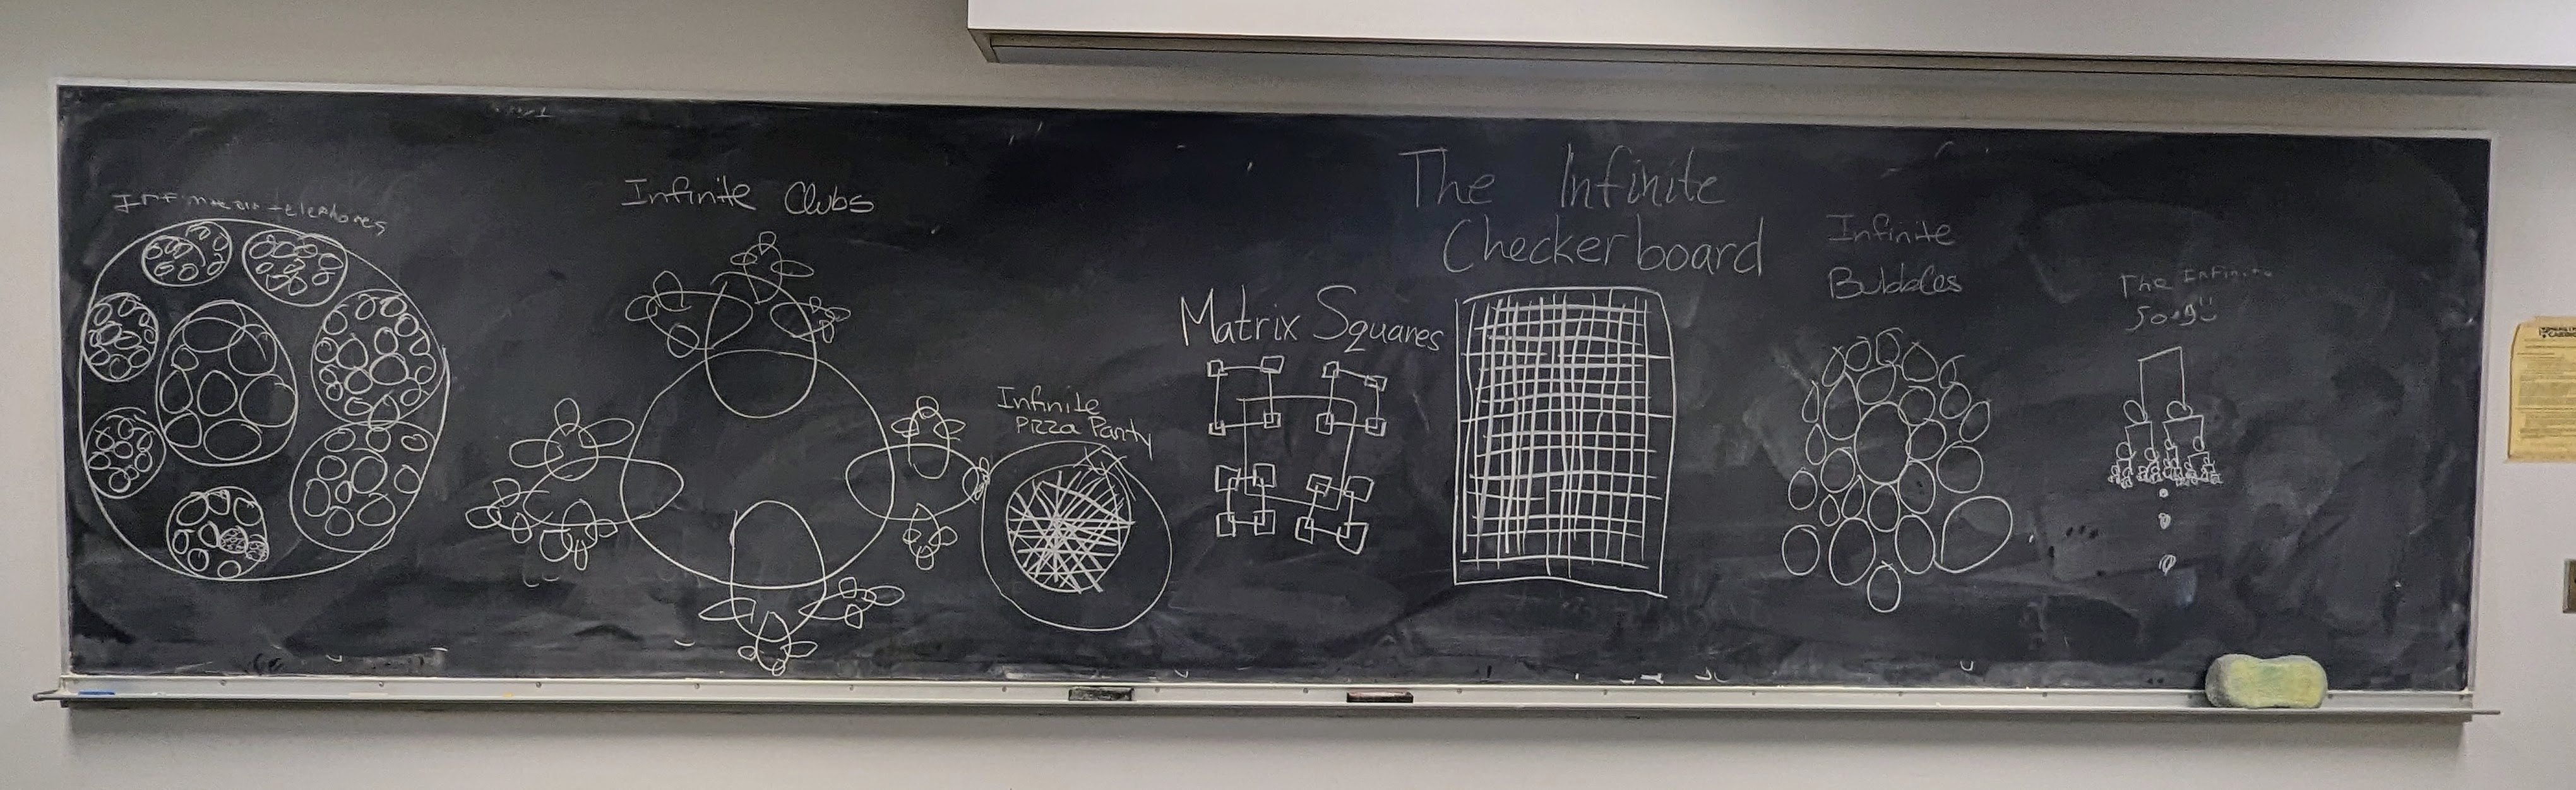 telephones
Infinite Clubs
Infinite
Pizza Party
Matrix Squares
The Infinite
Checkerboard
Infinite
Bubbles
The Infinite
Song